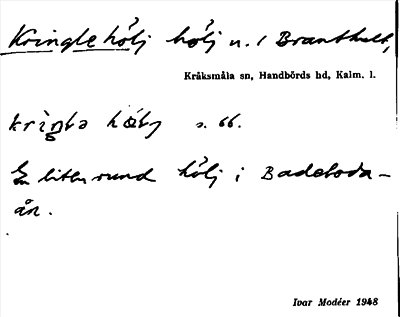 Kringlehölj hölj n. / Branthult,
Kråksmåla sn, Handbörds hd, Kalm. l.
s. 66.
En liten rund hölj i Badeboda-
ån.
Ivar Modéer 1948